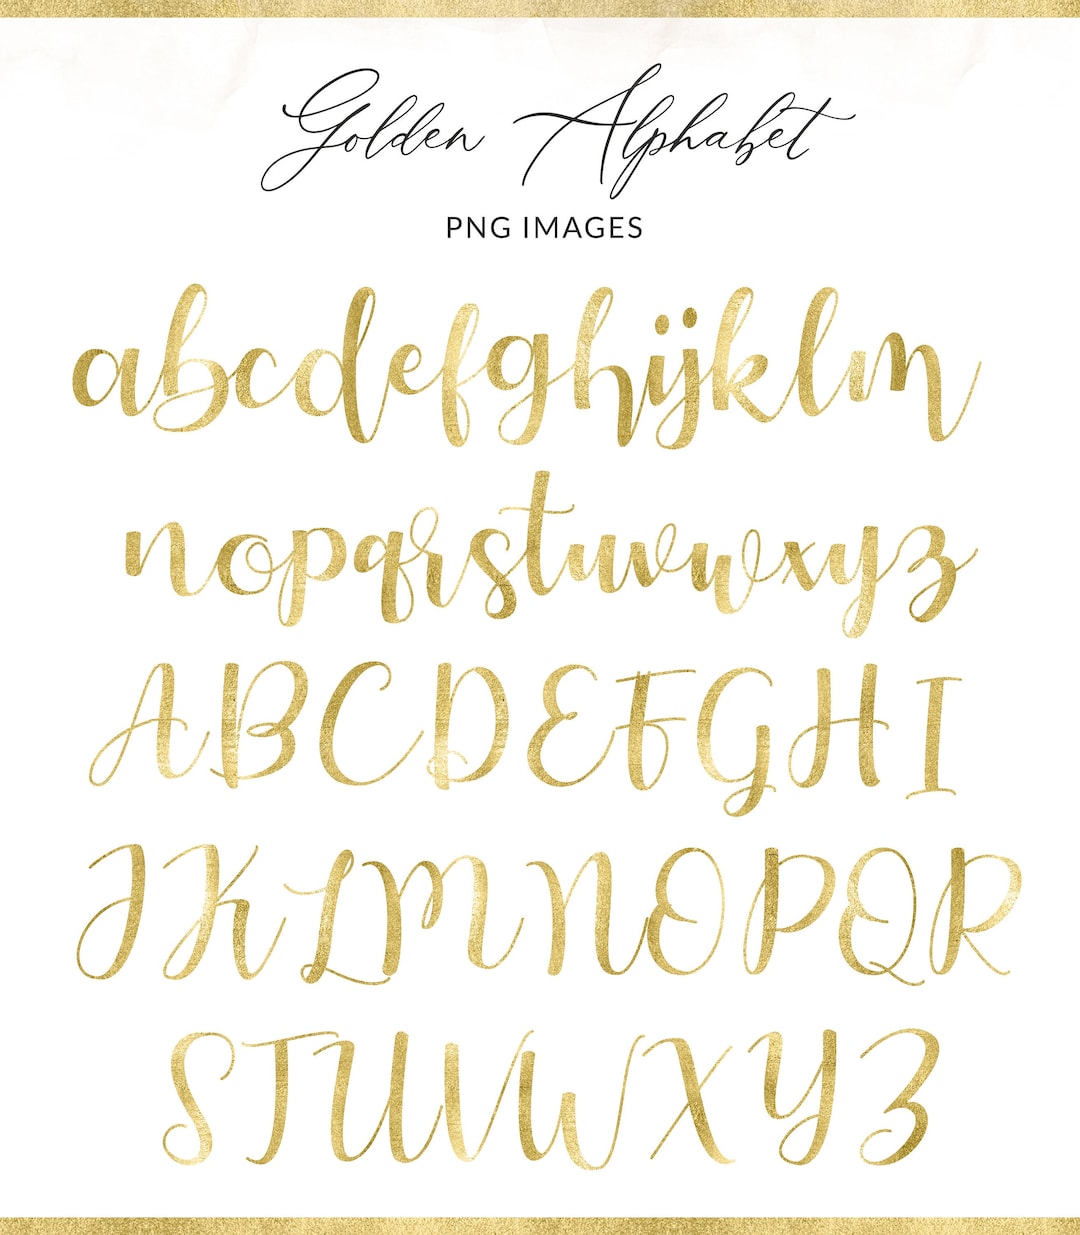 Golden Alphabet
PNG IMAGES
abcdefghijklm
nopqrstuvwxyz
ABCDEFGHI
JKLMNOPQR
STUVWXYZ